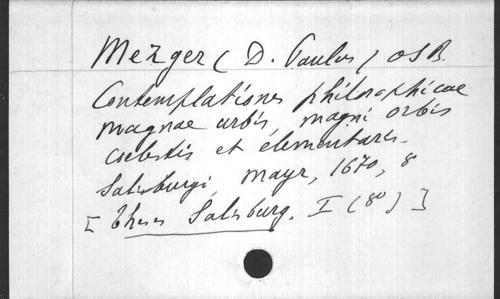 Mezger ( D. Paulus ) OSB.
Contemplationes philosophicae
magnae urbis, magni orbis
coelestis et elementaris.
Salisburgi, Mayr, 1670, 8
[ Theses Salisburg. I (8°) ]